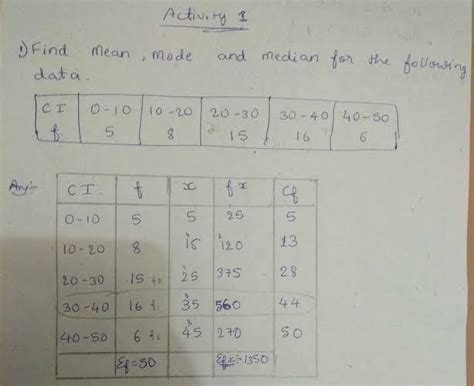 Activity 1
1) Find mean, mode and median for the following
data.
CI 0-10 10-20 20-30 30-40 40-50
f 5 8 15 16 6
Ans:-
C I. f x fx Cf
0-10 5 5 25 5
10-20 8 15 120 13
20-30 15 25 375 28
30-40 16 35 560 44
40-50 6 45 270 50
Σf=50 Σfx=1350